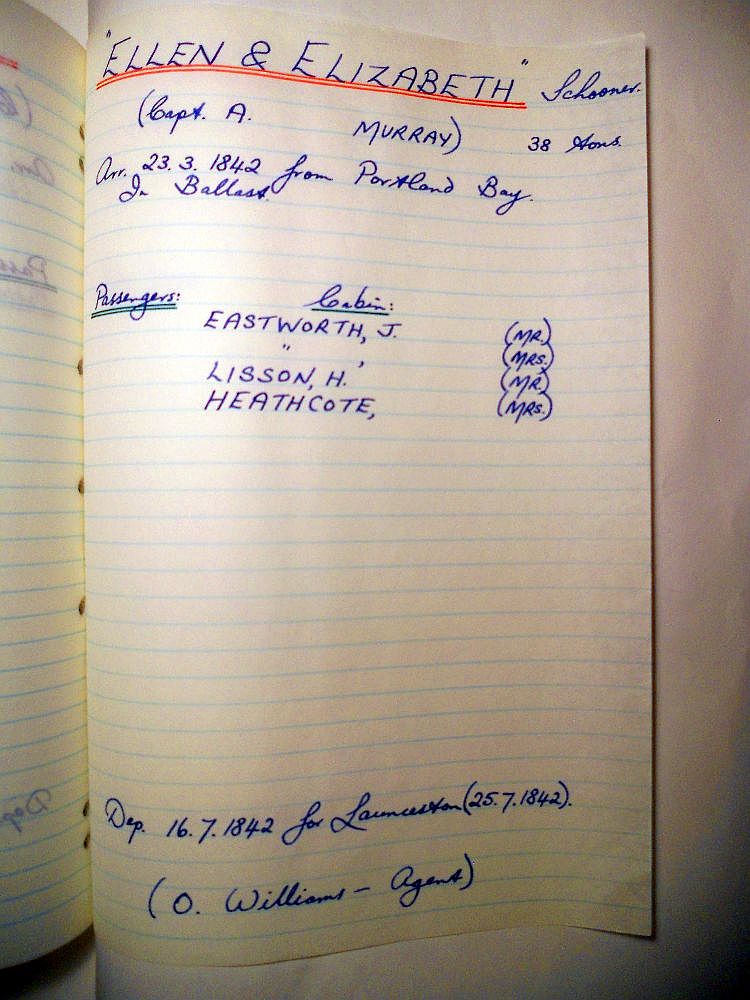 "ELLEN & ELIZABETH" Schooner.
(Capt. A. MURRAY) 38 tons.
Arr. 23.3.1842 from Portland Bay.
In Ballast.
Passengers: Cabin:
EASTWORTH, J. (MR.)
" , (MRS.)
LISSON, H. (MR.)
HEATHCOTE, (MRS.)
Dep. 16.7.1842 for Launceston (25.7.1842).
(O. Williams - Agent)